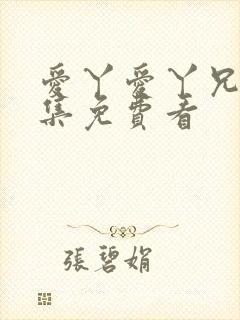 愛丫愛丫兄
集免費看
張碧娟